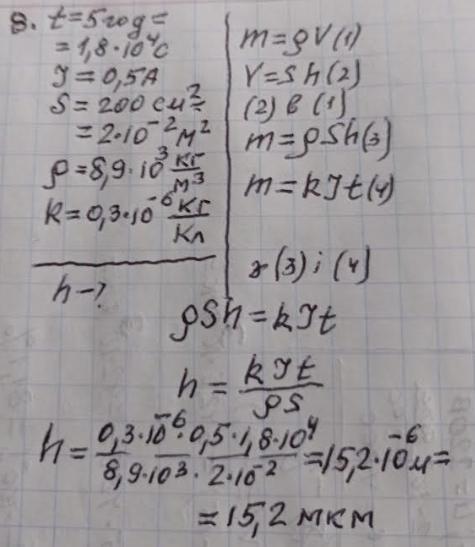 8. t = 5 год =
= 1,8·10⁴ с
I = 0,5 А
S = 200 см² =
= 2·10⁻² м²
ρ = 8,9·10³ кг/м³
k = 0,3·10⁻⁶ кг/Кл
h - ?
m = ρV (1)
V = Sh (2)
(2) в (1)
m = ρSh (3)
m = kIt (4)
з (3) і (4)
ρSh = kIt
h = kIt/ρS
h = 0,3·10⁻⁶·0,5·1,8·10⁴/8,9·10³·2·10⁻² = 15,2·10⁻⁶ м =
= 15,2 мкм